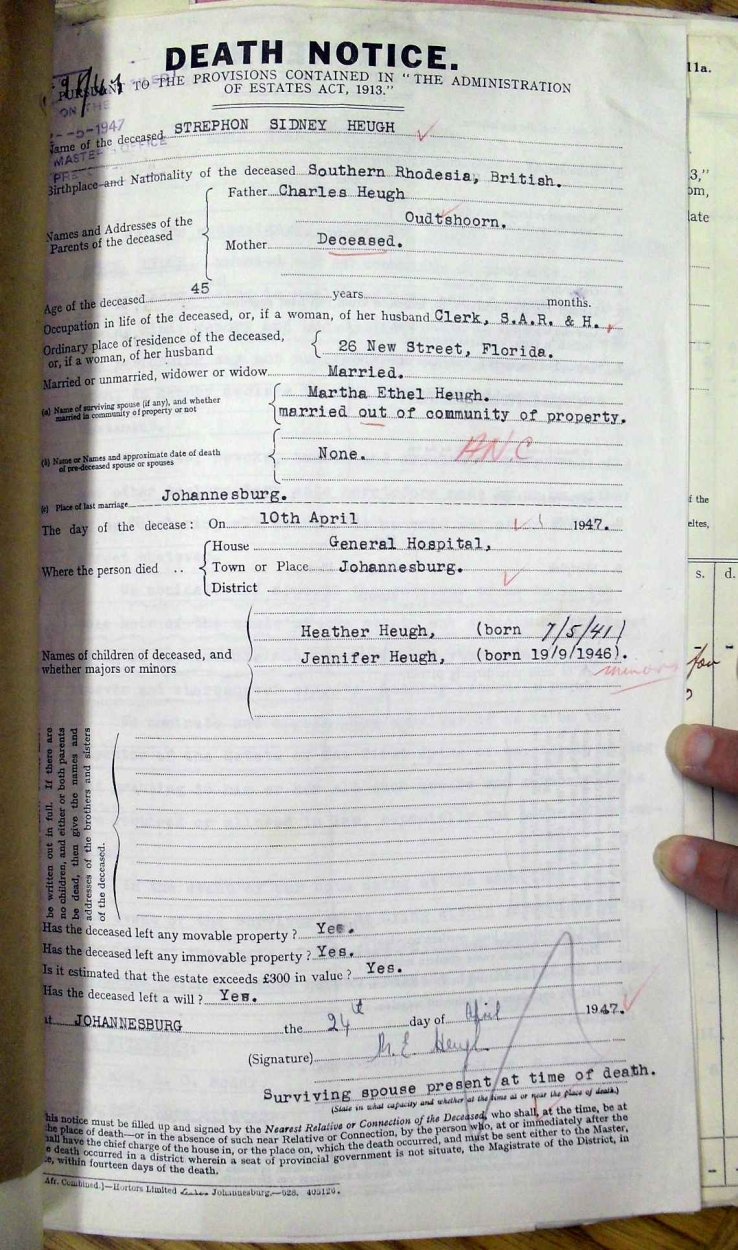 DEATH NOTICE.
PURSUANT TO THE PROVISIONS CONTAINED IN "THE ADMINISTRATION
OF ESTATES ACT, 1913."
ON THE
-5-1947
MASTER'S OFFICE
Name of the deceased STREPHON SIDNEY HEUGH
Birthplace and Nationality of the deceased Southern Rhodesia, British.
Names and Addresses of the Parents of the deceased
Father Charles Heugh
Oudtshoorn.
Mother Deceased.
Age of the deceased 45 years months.
Occupation in life of the deceased, or, if a woman, of her husband Clerk, S.A.R. & H.
Ordinary place of residence of the deceased, or, if a woman, of her husband 26 New Street, Florida.
Married or unmarried, widower or widow Married.
(a) Name of surviving spouse (if any), and whether married in community of property or not
Martha Ethel Heugh.
married out of community of property.
(b) Name or Names and approximate date of death of pre-deceased spouse or spouses
None. A.N.C
(c) Place of last marriage Johannesburg.
The day of the decease: On 10th April 1947.
Where the person died ..
House General Hospital,
Town or Place Johannesburg.
District
Names of children of deceased, and whether majors or minors
Heather Heugh, (born 7/5/41)
Jennifer Heugh, (born 19/9/1946).
minors
be written out in full. If there are
no children, and either or both parents
be dead, then give the names and
addresses of the brothers and sisters
of the deceased.
Has the deceased left any movable property? Yes.
Has the deceased left any immovable property? Yes.
Is it estimated that the estate exceeds £300 in value? Yes.
Has the deceased left a will? Yes.
at JOHANNESBURG the 24th day of April 1947.
(Signature) M. E. Heugh
Surviving spouse present at time of death.
(State in what capacity and whether at the time at or near the place of death.)
his notice must be filled up and signed by the Nearest Relative or Connection of the Deceased, who shall, at the time, be at
the place of death—or in the absence of such near Relative or Connection, by the person who, at or immediately after the
hall have the chief charge of the house in, or the place on, which the death occurred, and must be sent either to the Master,
e death occurred in a district wherein a seat of provincial government is not situate, the Magistrate of the District, in
ce, within fourteen days of the death.
Aft. Combined.]—Hortors Limited Johannesburg.—528. 405126.
11a.
3,"
om,
late
f the
eltes,
s. d.